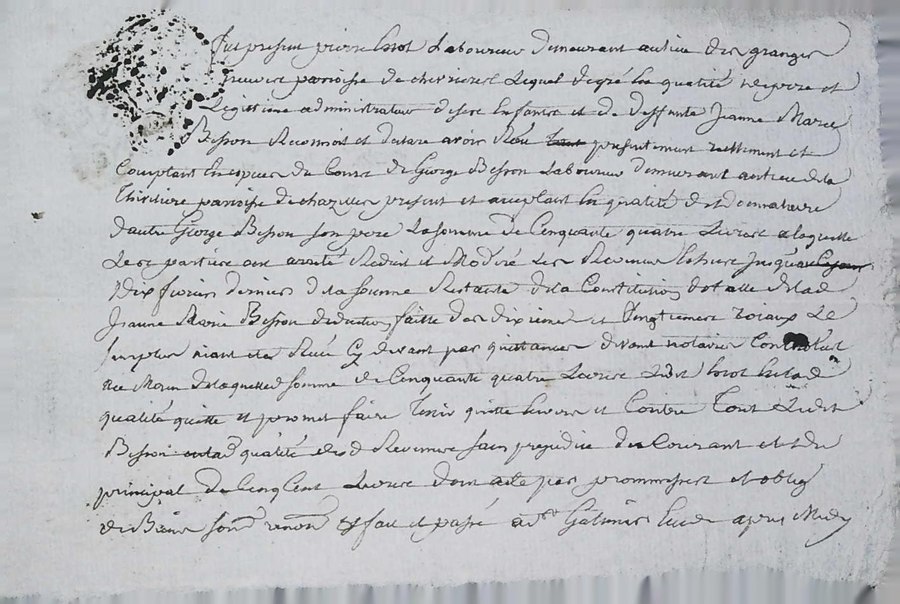 Fut present pierre hiot Laboureur demeurant au lieu des granges
neuves parroisse de chevrieres Lequel de gré En qualité de pere et
Legittime administrateur de ses Enfants et de deffunte Jeanne Marie
Besson Reconnoit et declare avoir Réeu tout presentement réellement et
Comptant En especes de Cours de George Besson Laboureur demeurant au lieu de la
Thivilliere parroisse de chazelles present et acceptant En qualité de donnataire
d'autre George Besson son pere La somme de Cinquante quatre Livres a laquelle
Les parties ont arrêté Reduit et Modéré Les Revenus Echus Jusqu'au
Dix fevrier dernier de la somme Restante de la Constitution dotalle de lad
Jeanne Marie Besson deduction faitte des dixieme et Vingtiemes roiaux Le
surplus aiant eté Réeu Cy devant par quittances devant notaires Controlleés
Me Morin de laquelled somme de Cinquante quatre Livres Ledit hiot En lad
qualité quitte et promet faire Tenir quitte Envers et Contre Tout Ledit
Besson en lad qualité desd Revenus sans prejudice du Courant et du
principal de Cinq Cent Livres dont acte par promesses et oblig
de Biens soum renon fait et passé a St Galmier Etude apres Midy